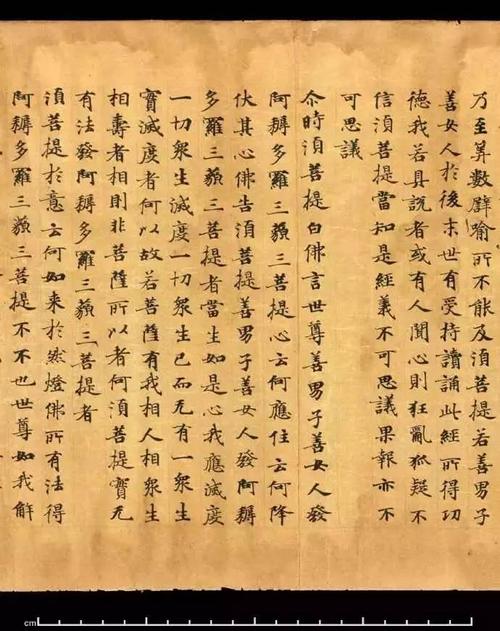 乃至筭數譬喻所不能及湏菩提若善男子
善女人於後末世有受持讀誦此經所得功
德我若具說者或有人聞心則狂亂狐疑不
信湏菩提當知是經義不可思議果報亦不
可思議
尒時湏菩提白佛言世尊善男子善女人發
阿耨多羅三藐三菩提心云何應住云何降
伏其心佛告湏菩提善男子善女人發阿耨
多羅三藐三菩提者當生如是心我應滅度
一切衆生滅度一切衆生已而无有一衆生
實滅度者何以故若菩薩有我相人相衆生
相壽者相則非菩薩所以者何湏菩提實无
有法發阿耨多羅三藐三菩提者
湏菩提於意云何如来於然燈佛所有法得
阿耨多羅三藐三菩提不不也世尊如我解
cm